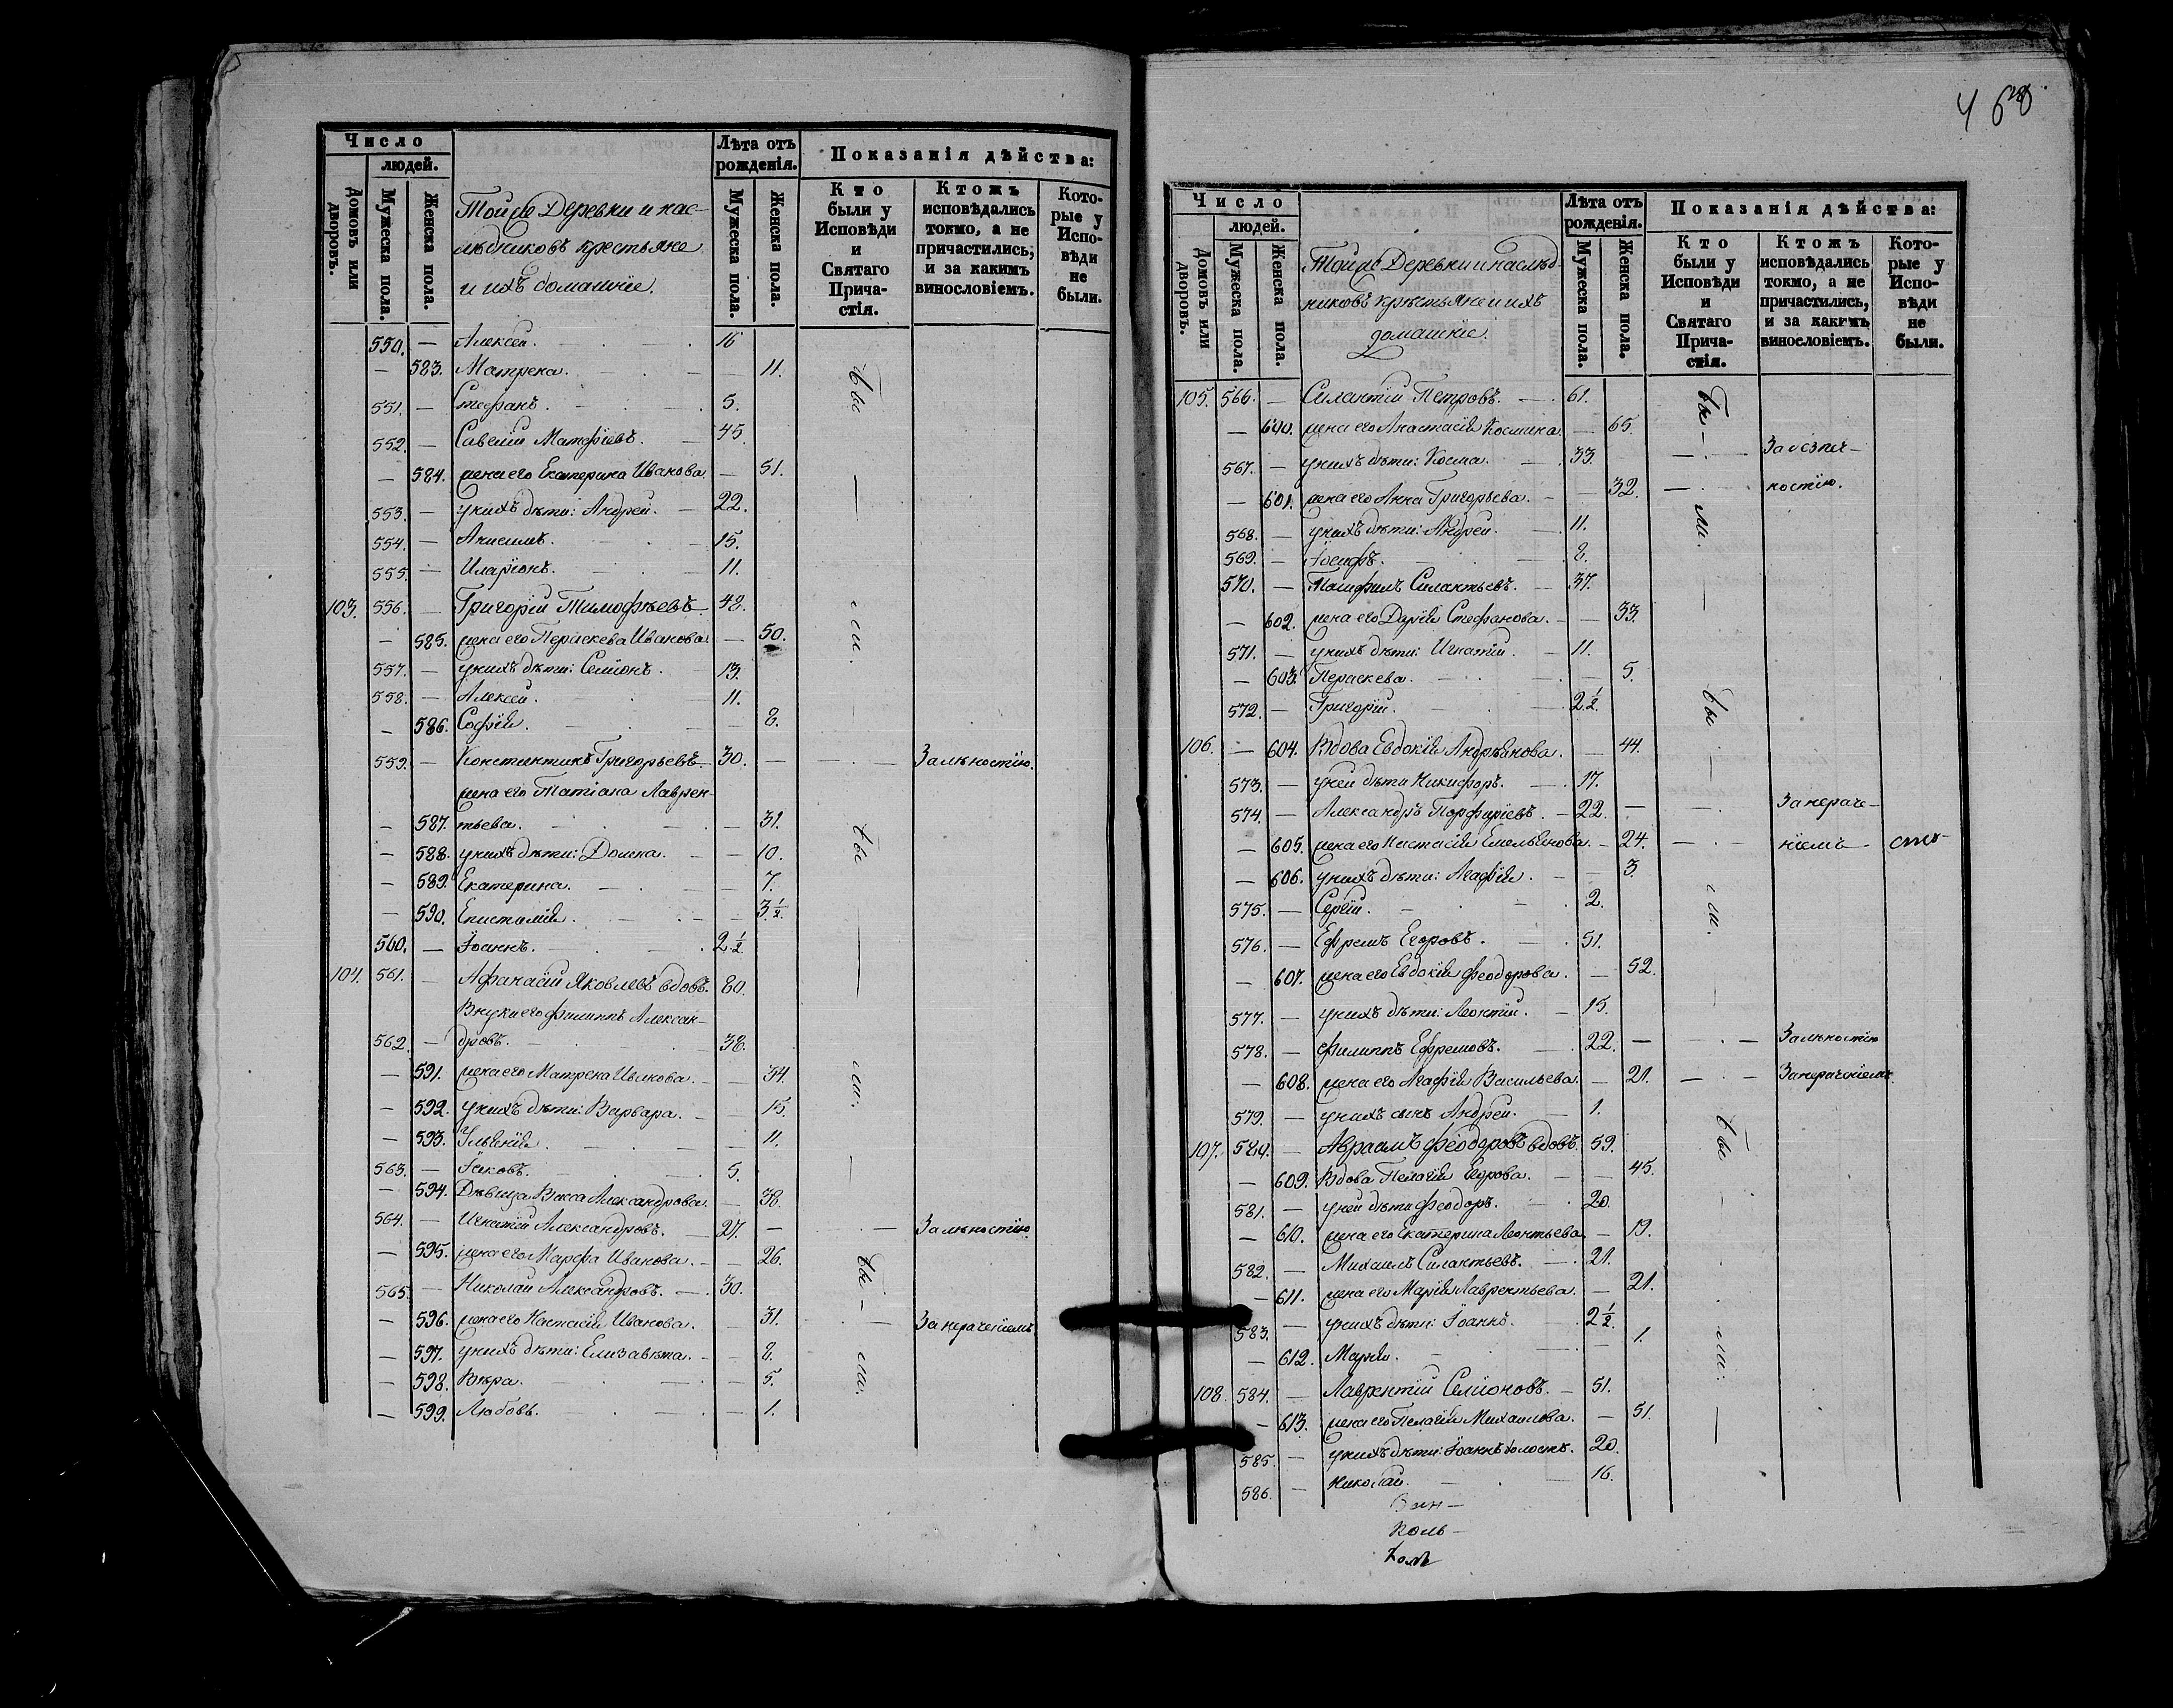 Число
людей.
Домовъ или дворовъ.
Мужеска пола.
Женска пола.
Тойже Деревни и нас-
лѣдниковъ крестьяне
и ихъ домашніе.
Лѣта отъ рожденія.
Мужеска пола.
Женска пола.
Показанія дѣйства:
Кто были у Исповѣди и Святаго Прича-стія.
Ктожъ исповѣдались токмо, а не причастились, и за какимъ винословіемъ.
Кото-рые у Испо-вѣди не были.
550. — Алексей. 16
— 583. Матрена. — 11.
551. — Стефанъ. 5.
552. — Савелій Матфіевъ. 45.
— 584. жена его Екатерина Иванова. — 51.
553. — у нихъ дѣти: Андрей. 22.
554. — Анисимъ. 15.
555. — Иларіонъ. 11.
103. 556. — Григорій Тимофѣевъ. 48.
— 585. жена его Параскева Иванова. — 50.
557. — у нихъ дѣти: Семіонъ. 13.
558. — Алексей. 11.
— 586. Софія. — 8.
559. — Константинъ Григорьевъ. 30. — — . — За лѣностію.
жена его Татіана Лаврен-
— 587. тьева. — 31.
— 588. у нихъ дѣти: Домна. — 10.
— 589. Екатерина. — 7.
— 590. Епистимія. — 3 1/2.
560. — Іоаннъ. 2 1/2
104. 561. — Афанасій Яковлевъ вдовъ. 80.
Внуки его Филиппъ Алексан-
562. — дровъ. 38.
— 591. жена его Матрена Иванова. — 34.
— 592. у нихъ дѣти: Варвара. — 15.
— 593. Ульянія. — 11.
563. — Іаковъ. 5.
— 594. Дѣвица Васса Александрова. — 38.
564. — Игнатій Александровъ. 27. — . — За лѣностію.
— 595. жена его Марфа Иванова. — 26.
565. — Николай Александровъ. 30.
— 596. жена его Настасія Иванова. — 31. — . — За нераченіемъ
— 597. у нихъ дѣти: Елизавета. — 8.
— 598. Вѣра. — 5.
— 599. Любовь. — 1.
бы — ли. — бы — ли. — бы — ли.
Число
людей.
Домовъ или дворовъ.
Мужеска пола.
Женска пола.
Тойже Деревни и наслѣд-
никовъ крестьяне и ихъ
домашніе.
Лѣта отъ рожденія.
Мужеска пола.
Женска пола.
Показанія дѣйства:
Кто были у Исповѣди и Святаго Прича-стія.
Ктожъ исповѣдались токмо, а не причастились, и за какимъ винословіемъ.
Кото-рые у Испо-вѣди не были.
105. 566. — Силантій Петровъ. 61.
— 600. жена его Анастасія Космина. — 65.
567. — у нихъ дѣти: Косма. 33. — . —
— 601. жена его Анна Григорьева. — 32. — . — ностію.
568. — у нихъ дѣти: Андрей. 11.
569. — Іосифъ. 8.
570. — Памфилъ Силантьевъ. 37.
— 602. жена его Дарія Стефанова. — 33.
571. — у нихъ дѣти: Игнатій. 11.
— 603. Параскева. — 5.
572. — Григорій. 2 1/2.
106. — 604. Вдова Евдокія Андреянова. — 44.
573. — у ней дѣти Никифоръ. 17.
574. — Александръ Порфиріевъ. 22. — — . За нераче-
— 605. жена его Настасія Емельянова. — 24. — . — ніемъ
— 606. у нихъ дѣти: Агафія. — 3.
575. — Сергій. 2.
576. — Ефремъ Егоровъ. 51.
— 607. жена его Евдокія Феодорова. — 52.
577. — у нихъ дѣти: Леонтій. 15.
578. — Филиппъ Ефремовъ. 22. — — . — За лѣностію
— 608. жена его Агафія Васильева. — 21. — . — За нераченіемъ.
579. — у нихъ сынъ Андрей. 1.
107. — Авраамъ Феодоровъ вдовъ. 59.
— 609. Вдова Пелагія Егорова. — 45.
581. — у ней дѣти Феодоръ. 20.
— 610. жена его Екатерина Леонтьева. — 19.
582. — Михаилъ Силантьевъ. 21.
— 611. жена его Марія Лаврентьева. — 21.
583. — у нихъ дѣти: Іоаннъ. 2 1/2.
— 612. Марія. — 1.
108. 584. — Лаврентій Семіоновъ. 51.
— 613. жена его Пелагія Михаилова. — 51.
585. — у нихъ дѣти: Іоаннъ холостъ. 20.
586. — Николай. 16.
бы — ли. — бы — ли. — бы — ли. —